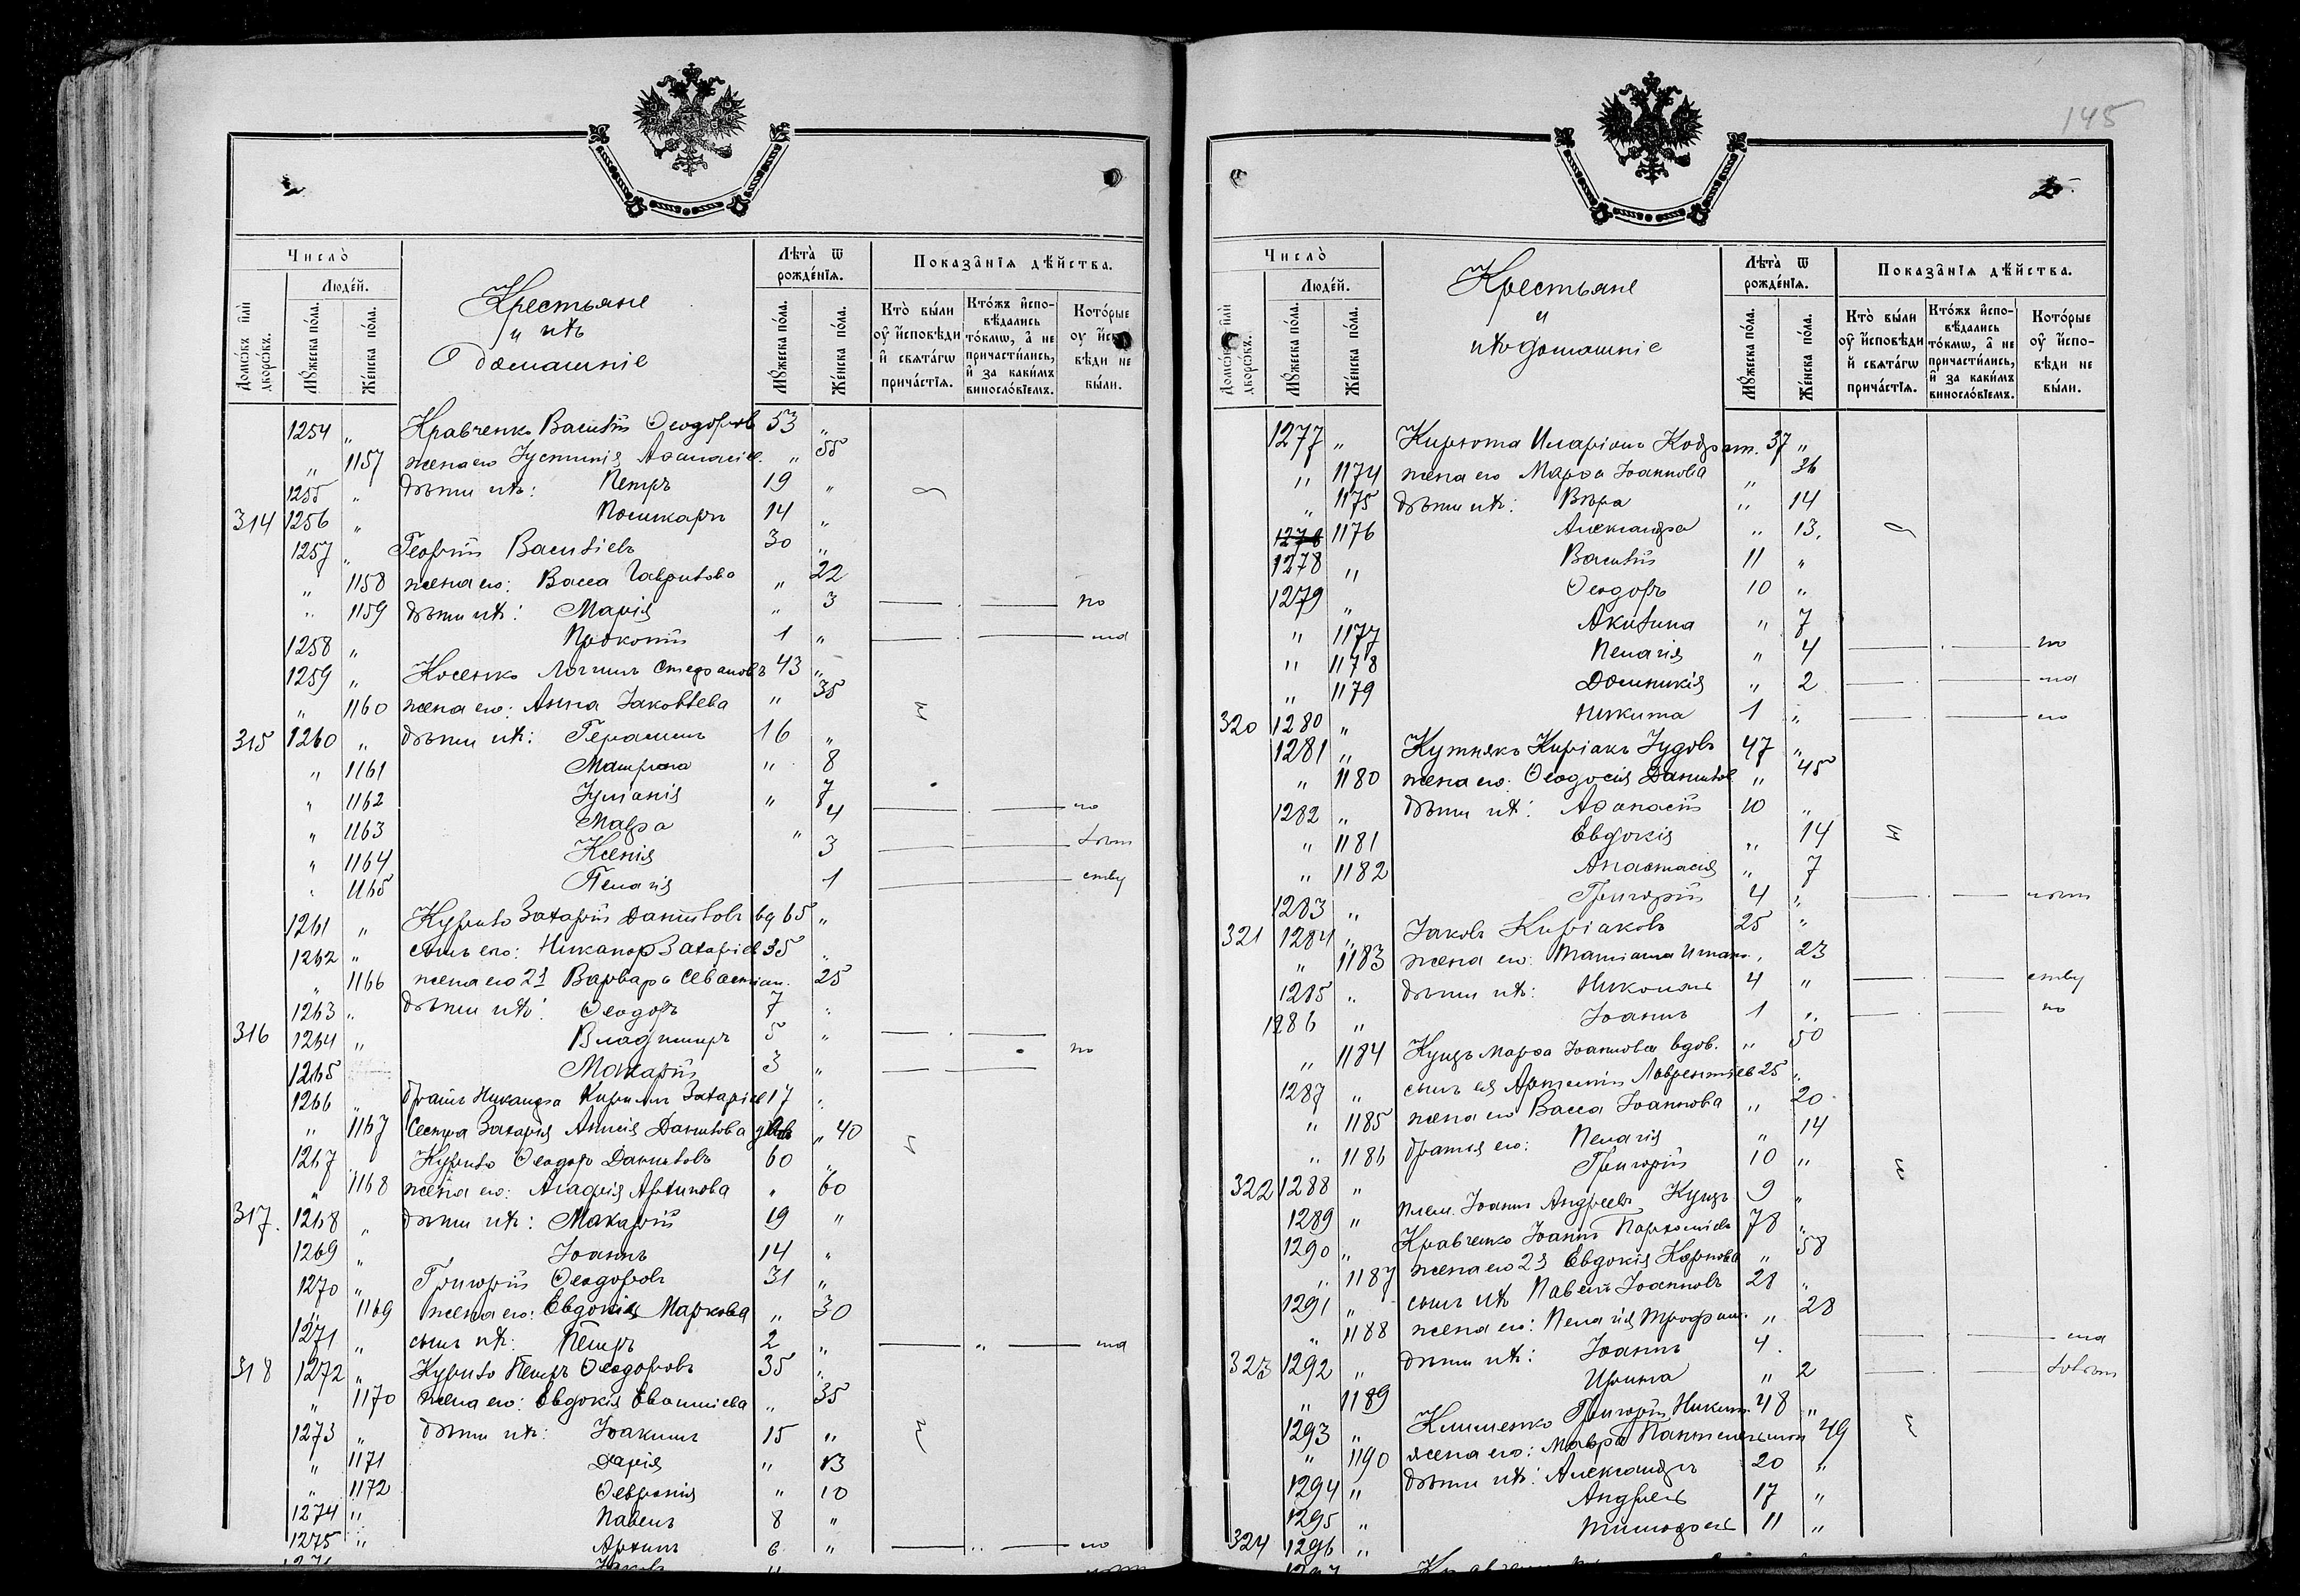 Число̀
Людéй.
Домóкъ и҆лѝ дворóкъ.
Мꙋ́жеска пóла.
Жéнска пóла.
Крестьяне
и ихъ
домашніе
Лѣта̀ ѿ рождéнїѧ.
Мꙋ́жеска пóла.
Жéнска пóла.
Показа̑нїѧ дѣ́йства.
Кто̀ бы́ли оу҆ и҆сповѣди и҆ свѧтáгѡ причáстїѧ.
Ктóжъ и҆сповѣдались тóкмѡ, а҆ не причасти́лись, и҆ за каки́мъ винослóвїемъ.
Котóрые оу҆ и҆сповѣди не бы́ли.
1254 „ Кравченко Василій Ѳеодоровъ 53 „
„ 1157 жена его Іустинія Аѳанасіев. „ 55
1255 „ дѣти ихъ: Петръ 19 „
314 1256 „ Поликарпъ 14 „
1257 „ Георгій Васильевъ 30 „
„ 1158 жена его: Васса Гаврилова „ 22
„ 1159 дѣти ихъ: Марія „ 3 по
1258 „ Прокопій 1 „ ма
1259 „ Косенко Логгинъ Стефановъ 43 „
„ 1160 жена его: Анна Іаковлева „ 35
315 1260 „ дѣти ихъ: Герасимъ 16 „
„ 1161 Матрона „ 8
„ 1162 Іуліанія „ 7
„ 1163 Мавра „ 4 ло
„ 1164 Ксенія 3 лѣт
„ 1165 Пелагія 1 ству
1261 „ Курило Захарій Даниловъ вд 65 „
1262 „ сынъ его: Никаноръ Захаріев 35 „
„ 1166 жена его 2я Варвара Севастіан. 25
1263 „ дѣти ихъ: Ѳеодоръ 7 „
316 1264 „ Владиміръ 5 „
1265 Макарій 3 „ по
1266 „ братъ Никанора Кириллъ Захаріев 17 „
„ 1167 Сестра Захарія Анисія Данилова „ 40
1267 Курило Ѳеодоръ Даниловъ 60 „
„ 1168 жена его: Агафія Архипова „ 60
317. 1268 „ дѣти ихъ: Макарій 19 „
1269 „ Іоаннъ 14 „
1270 „ Григорій Ѳеодоровъ 31 „
„ 1169 жена его: Евдокія Маркова „ 30
1271 „ сынъ ихъ: Петръ 2 „ ма
318 1272 „ Курило Петръ Ѳеодоровъ 35 „
„ 1170 жена его: Евдокія Евѳиміева „ 35
1273 „ дѣти ихъ: Іоакимъ 15 „
„ 1171 Дарія „ 13
„ 1172 Ѳевронія „ 10
1274 „ Павелъ 8 „
1275 „ Архипъ 6 „ ло
Іаковъ
145
Число̀
Людéй.
Домóкъ и҆лѝ дворóкъ.
Мꙋ́жеска пóла.
Жéнска пóла.
Крестьяне
и
ихъ домашніе
Лѣта̀ ѿ рождéнїѧ.
Мꙋ́жеска пóла.
Жéнска пóла.
Показа̑нїѧ дѣ́йства.
Кто̀ бы́ли оу҆ и҆сповѣди и҆ свѧтáгѡ причáстїѧ.
Ктóжъ и҆сповѣдались тóкмѡ, а҆ не причасти́лись, и҆ за каки́мъ винослóвїемъ.
Котóрые оу҆ и҆сповѣди не бы́ли.
1277 „ Кирюта Иларіонъ Кодрат. 37 „
„ 1174 жена его Марѳа Іоаннова „ 36
„ 1175 дѣти ихъ: Вѣра „ 14
1278 1176 Александра „ 13.
1278 „ Василій 11 „
1279 „ Ѳеодоръ 10 „
„ 1177 Акилина „ 7
„ 1178 Пелагія „ 4 по
„ 1179 Домникія „ 2 ма
320 1280 „ Никита 1 „ ло
1281 „ Кутнякъ Киріакъ Іудовъ 47 „
„ 1180 жена его: Ѳеодосія Данилов „ 45
1282 „ дѣти ихъ: Аѳанасій 10 „
„ 1181 Евдокія „ 14
„ 1182 Анастасія „ 7
1283 „ Григорій 4 „ лѣт
321 1284 „ Іаковъ Киріаковъ 25 „
„ 1183 жена его: Татіана 23
1285 „ дѣти ихъ: Николай 4 „ ству
1286 „ Іоаннъ 1 „ по
„ 1184 Куцъ Марѳа Іоаннова вдов. „ 50
1287 „ сынъ ея Артемій Лаврентіев 25 „
„ 1185 жена его Васса Іоаннова „ 20
„ 1186 братья его: Пелагія „ 14
322 1288 „ Григорій 10 „
1289 „ плем. Іоаннъ Андреевъ Куцъ 9 „
1290 „ Кравченко Іоаннъ Парѳеніевъ 78 „
„ 1187 жена его 2я Евдокія Карпова „ 58
1291 „ сынъ ихъ Павелъ Іоанновъ 28 „
„ 1188 жена его: Пелагія Трофим. „ 28
323 1292 „ дѣти ихъ: Іоаннъ 4 ма
„ 1189 Ирина „ 2
1293 „ Клименко Григорій Никит. 48 „
„ 1190 жена его: Мавра Пантелеимон 49
1294 „ дѣти ихъ: Александръ 20 „
1295 „ Андрей 17 „
324 1296 „ Тимоѳей 11 „
1297